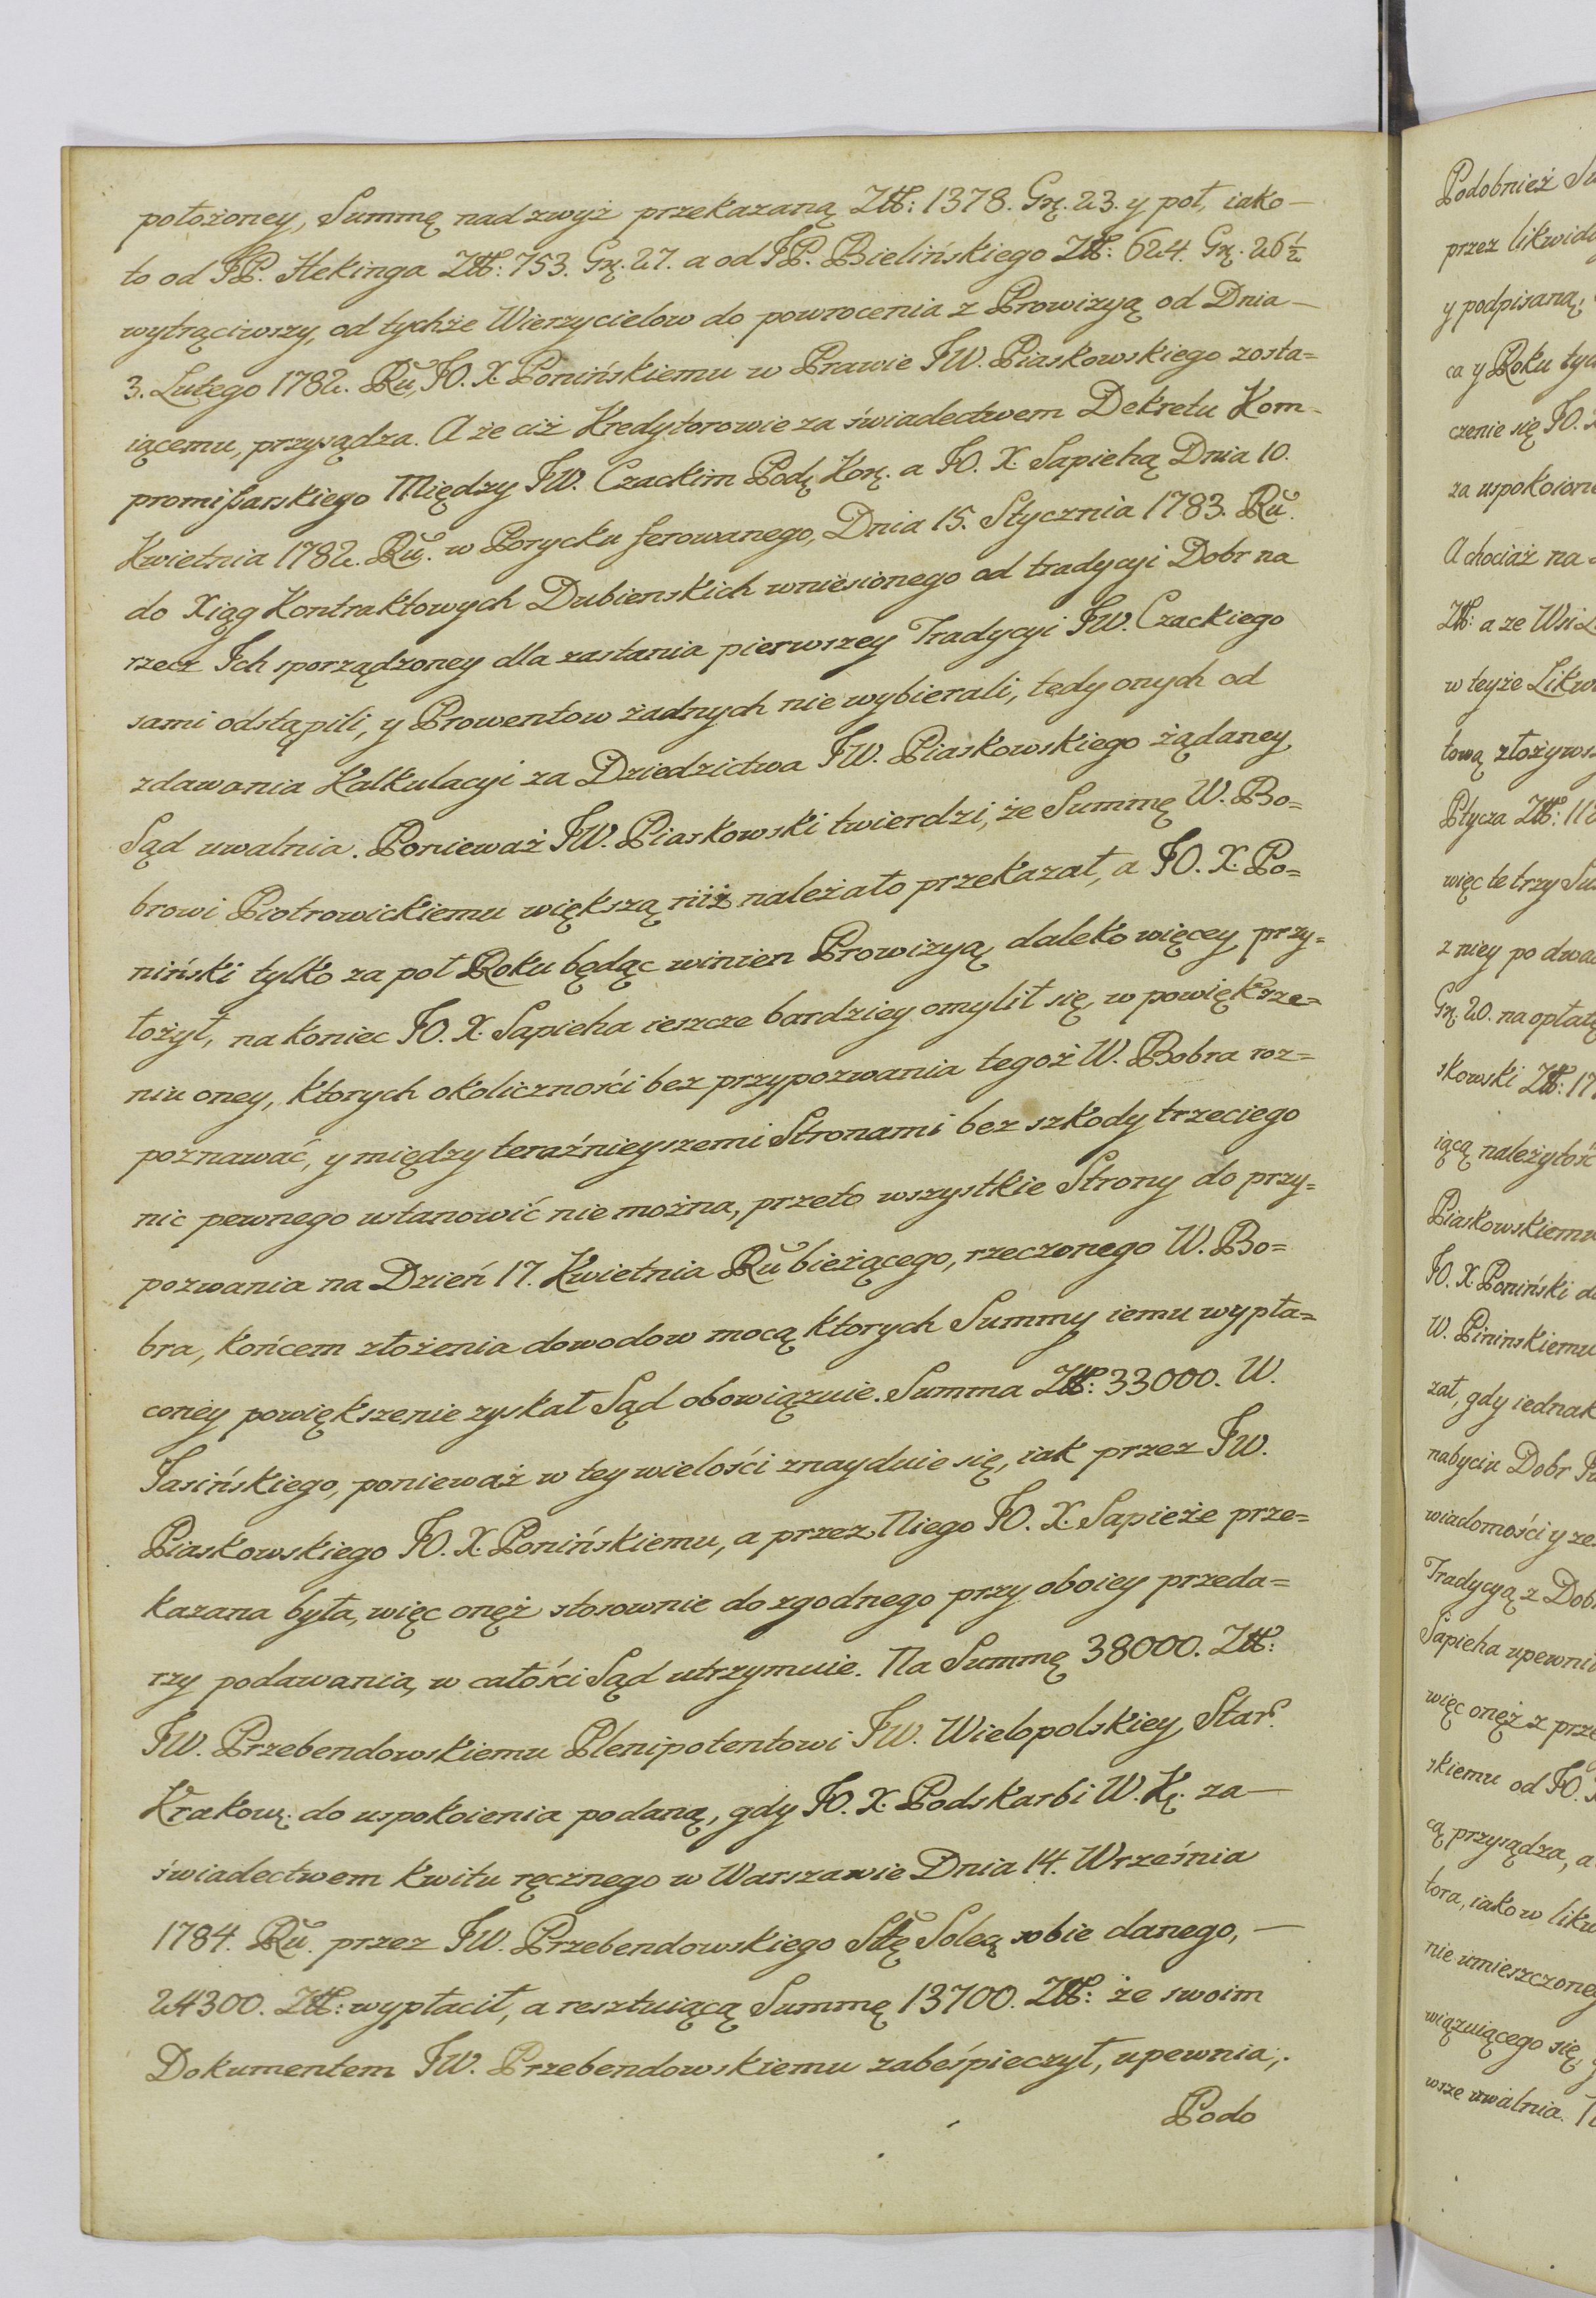 położoney, Summę nad zwyż przekazaną Złł: 1378. Grę. 23. y poł, iako —
to od JP. Hekinga Złł: 753. Grę. 27. a od JP. Bielińskiego Złł: 624. Grę. 26 1/2
wytrąciwszy, od tychże Wierzycielow do powrocenia z Prowizyą od Dnia —
3. Lutego 1782. Ru, JO. X. Ponińskiemu w Prawie JW. Piaskowskiego zosta=
iącemu, przysądza. A że ciż Kredytorowie za świadectwem Dekretu Kom-
promißarskiego Między JW. Czackim Podę Korę. a JO. X. Sapiehą Dnia 10.
Kwietnia 1782. Ru. w Porycku ferowanego, Dnia 15. Stycznia 1783. Ru.
do Xiąg Kontraktowych Dubienskich wniesionego od tradycyi Dobr na
rzecz Ich sporządzoney dla zastania pierwszey Tradycyi JW. Czackiego
sami odstąpili, y Prowentow żadnych nie wybierali, tedy onych od
zdawania Kalkulacyi za Dziedzictwa JW. Piaskowskiego żądaney,
Sąd uwalnia. Ponieważ JW. Piaskowski twierdzi, że Summę W. Bo=
browi Piotrowickiemu większą niż należało przekazał, a JO. X. Po=
niński tylko za poł Roku będąc winien Prowizyą daleko więcey przy=
łożył, na koniec JO. X. Sapieha ieszcze bardziey omylił się, w powiększe=
niu oney, ktorych okoliczności bez przypozwania tegoż W. Bobra roz=
poznawać, y między teraźnieyszemi Stronami bez szkody trzeciego
nic pewnego ustanowić nie można, przeto wszystkie Strony do przy=
pozwania na Dzień 17. Kwietnia Ru bieżącego, rzeczonego W. Bo=
bra, końcem złożenia dowodow mocą ktorych Summy iemu wypła=
coney powiększenie zyskał Sąd obowiązuie. Summa Złł: 33000. W.
Jasińskiego, ponieważ w tey wielości znayduie się, iak przez JW.
Piaskowskiego JO. X. Ponińskiemu, a przez Niego JO. X. Sapieże prze=
kazana była, więc onęż stosownie do zgodnego przy oboiey przeda=
rzy podawania, w całości Sąd utrzymuie. Na Summę 38000. Złł:
JW. Przebendowskiemu Plenipotentowi JW. Wielopolskiey Star.
Krakowę. do uspokoienia podaną, gdy JO. X. Podskarbi W. Kę. za —
świadectwem kwitu ręcznego w Warszawie Dnia 14. Września
1784. Ru. przez JW. Przebendowskiego Sttę Solecą sobie danego, —
24300. Złł: wypłacił, a resztuiącą Summę 13700. Złł: że swoim
Dokumentem JW. Przebendowskiemu zabeśpieczył, upewnia,.
Podo
Podobnież
przez
y podpisaną,
ca y Roku
czenie się JO.
za
A chociaż na
Złł: a ze Wsi
w teyże
tową złożyws
Ptycza Złł:
więc te trzy
z niey po
Grę. 20. na opłatę
skowski Złł: 17
iącą
Piaskowskiemu
JO. X. Poniński
W. Pininskiemu
zał, gdy iednak
nabyciu Dobr
wiadomości y
Tradycyą z
Sapieha
więc onęż z
skiemu od JO.
cą przysądza, a
tora, iako w
nie
wiązuiącego się,
wsze uwalnia.